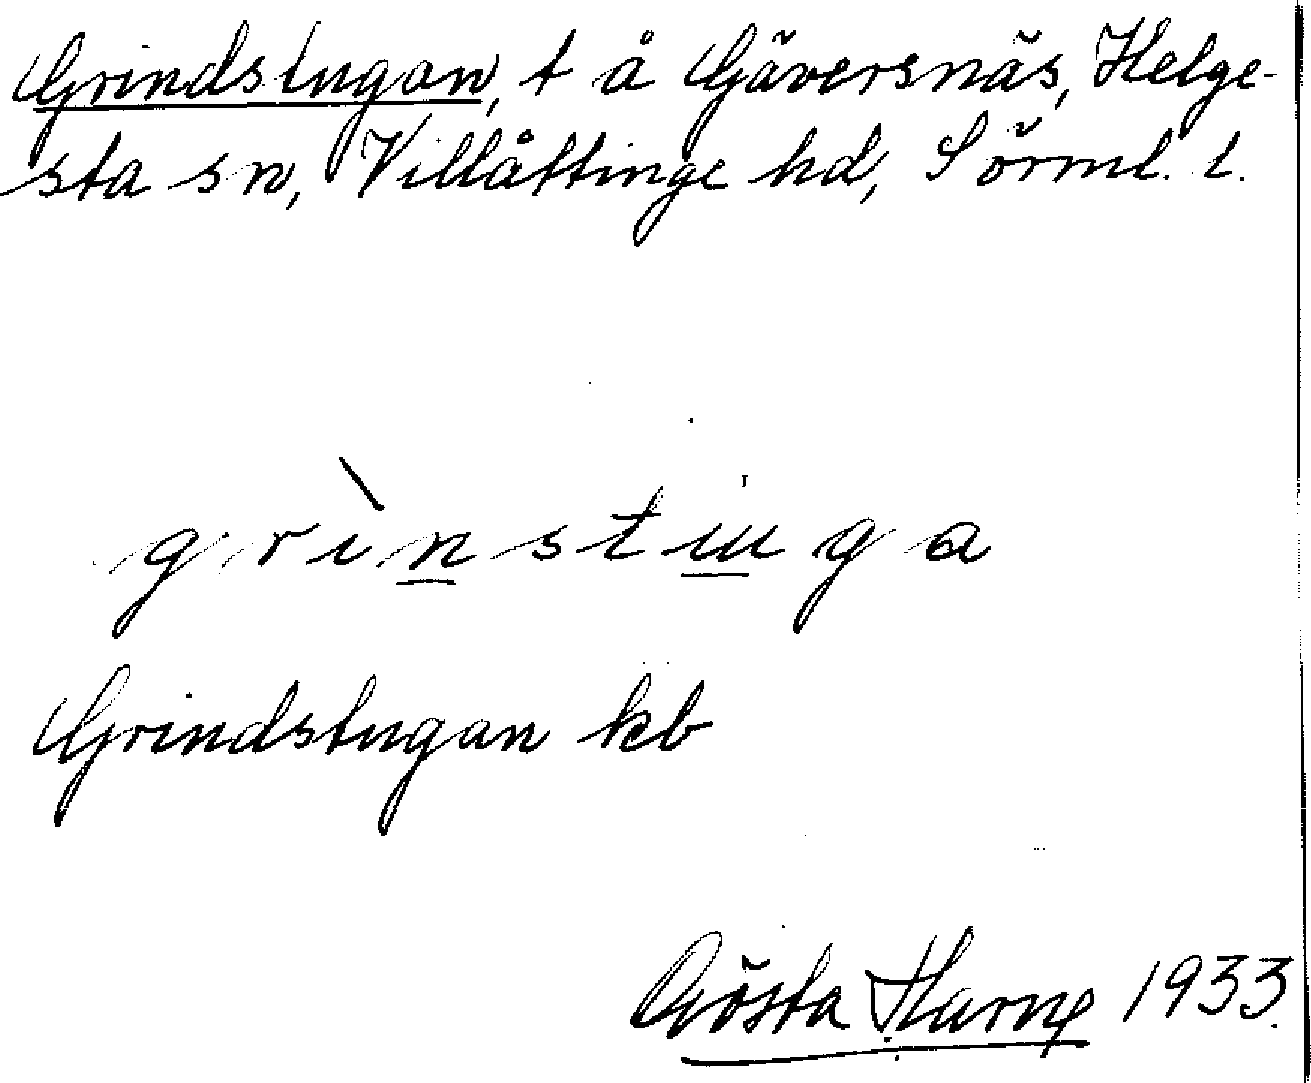 Grindstugan, t å Gäversnäs, Helge-
sta sn, Villåttinge hd, Sörml. l.
grìnstuga
Grindstugan kb
Gösta 1933.